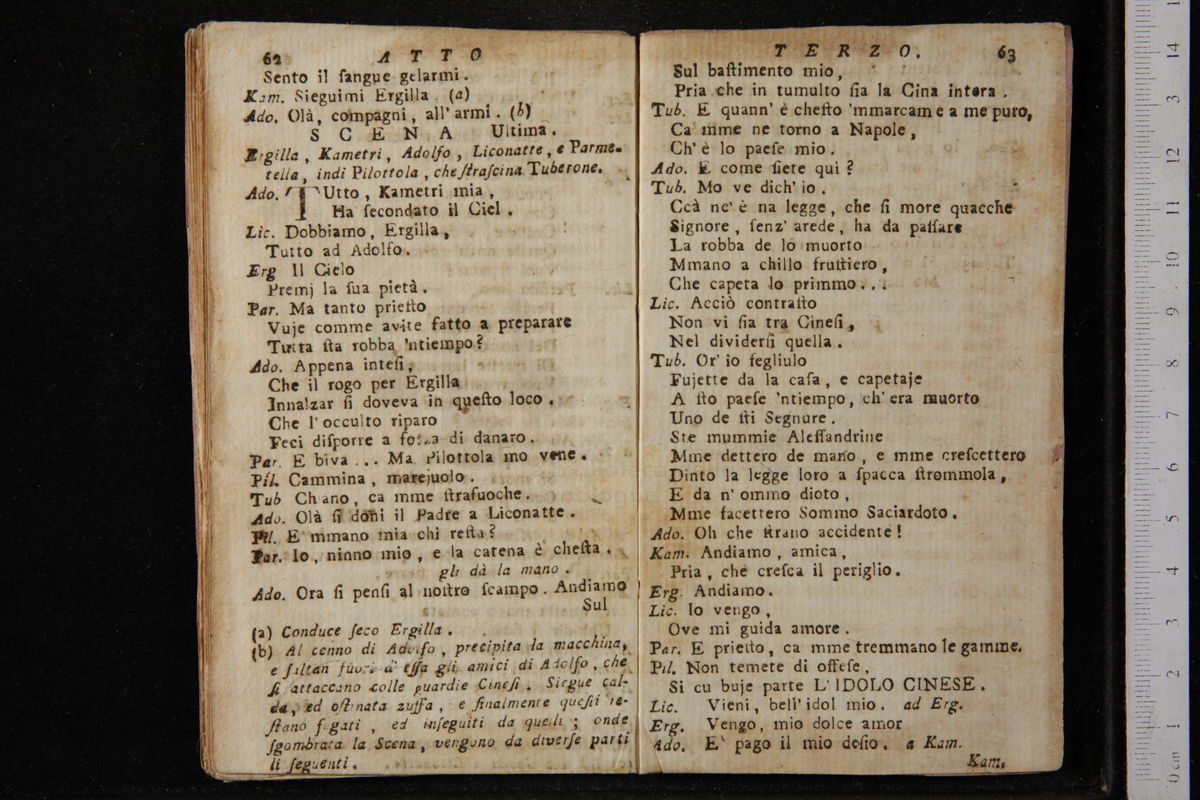 62 ATTO
Sento il ſangue gelarmi.
Kam. Sieguimi Ergilla (a)
Ado. Olà, compagni, all' armi. (b)
SCENA Ultima.
Ergilla, Kametri, Adolfo, Liconatte, e Parme-
tella, indi Pilottola, che ſtraſcina Tuberone.
Ado. TUtto, Kametri mia,
Ha ſecondato il Ciel.
Lic. Dobbiamo, Ergilla,
Tutto ad Adolfo.
Erg Il Cielo
Premj la ſua pietà.
Par. Ma tanto prieſto
Vuje comme avite fatto a preparare
Tutta ſta robba 'ntiempo?
Ado. Appena inteſi,
Che il rogo per Ergilla
Innalzar ſi doveva in queſto loco.
Che l' occulto riparo
Feci diſporre a forza di danaro.
Par. E biva ... Ma Pilottola mo vene.
Pil. Cammina, marejuolo.
Tub Chiano, ca mme ſtrafuoche.
Ado. Olà ſi doni il Padre a Liconatte.
Pil. E mmano mia chi reſta?
Par. Io, ninno mio, e la catena è cheſta.
gli dà la mano.
Ado. Ora ſi penſi al noſtro ſcampo. Andiamo
Sul
(a) Conduce ſeco Ergilla.
(b) Al cenno di Adolfo, precipita la macchina,
e ſaltan fuori d' eſſa gli amici di Adolfo, che
ſi attaccano colle guardie Cineſi. Siegue cal-
da, ed oſtinata zuffa, e finalmente queſti re-
ſtano fugati, ed inſeguiti da quelli; onde
ſgombrata la Scena, vengono da diverſe parti
li ſeguenti.
TERZO. 63
Sul baſtimento mio,
Pria che in tumulto ſia la Cina intera.
Tub. E quann' è cheſto 'mmarcame a me puro,
Ca mme ne torno a Napole,
Ch' è lo paeſe mio.
Ado. E come ſiete qui?
Tub. Mo ve dich' io.
Ccà nc' è na legge, che ſi more quacche
Signore, ſenz' arede, ha da paſſare
La robba de lo muorto
Mmano a chillo fruttiero,
Che capeta lo primmo...
Lic. Acciò contraſto
Non vi ſia tra Cineſi,
Nel dividerſi quella.
Tub. Or' io ſegliulo
Fujette da la caſa, e capetaje
A ſto paeſe 'ntiempo, ch' era muorto
Uno de ſti Segnure.
Ste mummie Aleſſandrine
Mme dettero de mano, e mme creſcettero
Dinto la legge loro a ſpacca ſtrommola,
E da n' ommo dioto,
Mme facettero Sommo Saciardoto.
Ado. Oh che ſtrano accidente!
Kam. Andiamo, amica,
Pria, che creſca il periglio.
Erg. Andiamo.
Lic. Io vengo,
Ove mi guida amore.
Par. E prieſto, ca mme tremmano le gamme.
Pil. Non temete di offeſe,
Si cu buje parte L' IDOLO CINESE.
Lic. Vieni, bell' idol mio. ad Erg.
Erg. Vengo, mio dolce amor
Ado. E' pago il mio deſio. a Kam.
Kam.
0 cm 1 2 3 4 5 6 7 8 9 10 11 12 3 14